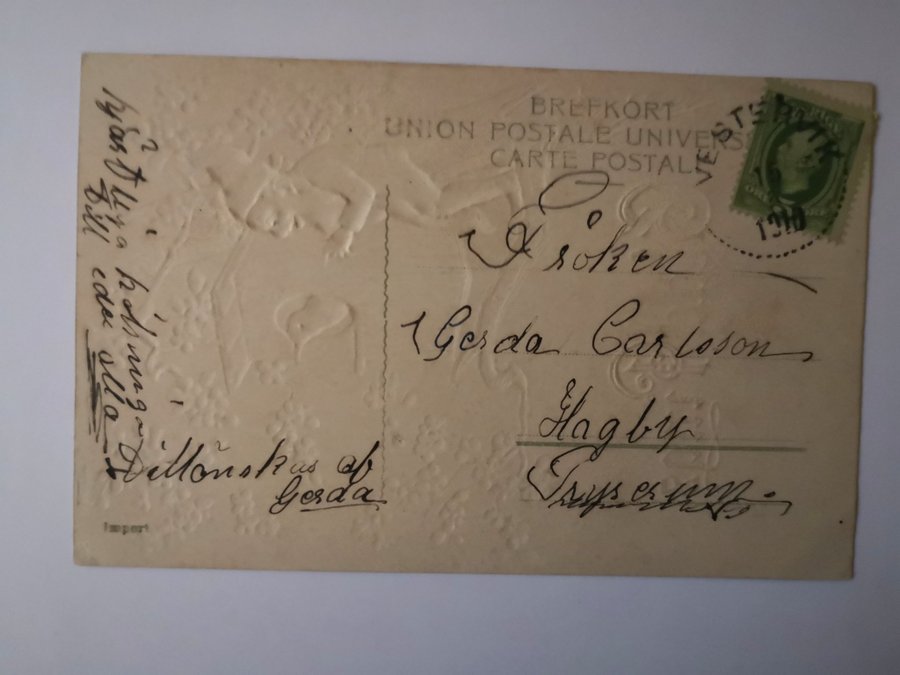 BREFKORT
UNION POSTALE UNIVERS
CARTE POSTALE
VESTERVIK
1910
Fröken
Gerda Carlsson
Hagby
Tryserum
hjärtliga hälsninga
Till eder alla
Tillönskas af
Gerda
Import